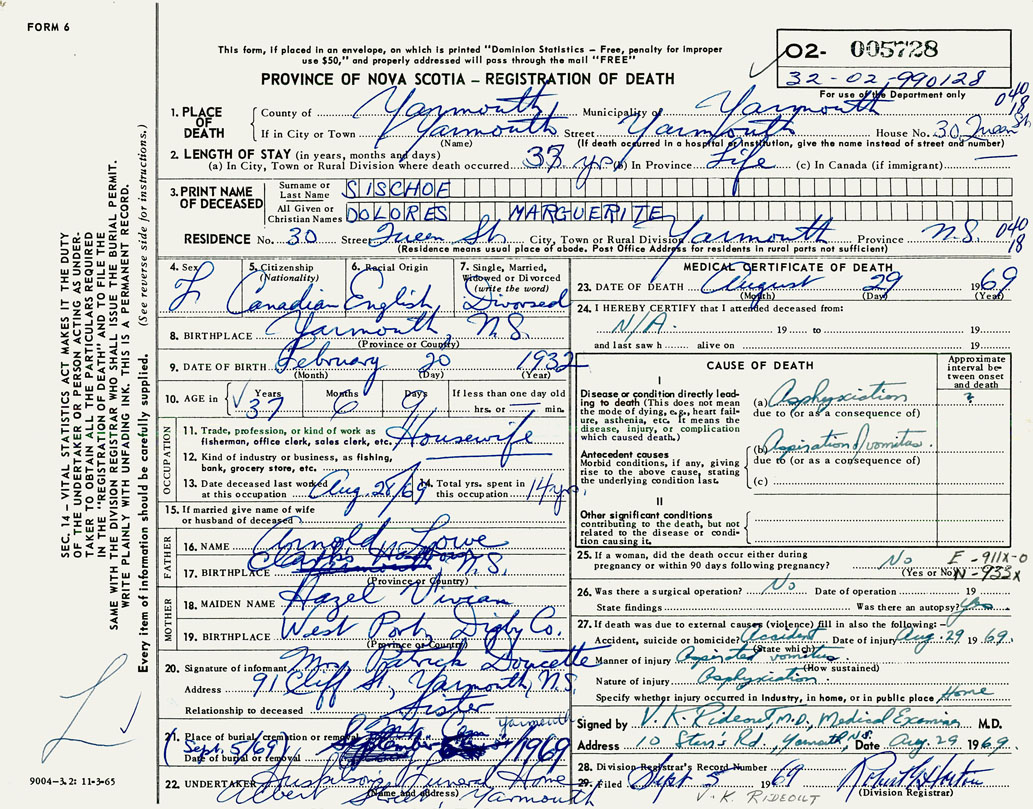 FORM 6
This form, if placed in an envelope, on which is printed "Dominion Statistics – Free, penalty for improper
use $50," and properly addressed will pass through the mail "FREE"
O2- 005728
32-02-990128
For use of the Department only
PROVINCE OF NOVA SCOTIA – REGISTRATION OF DEATH
040
18
1. PLACE OF DEATH
County of Yarmouth Municipality of Yarmouth
If in City or Town Yarmouth Street Yarmouth House No. 30 Queen St.
(Name) (If death occurred in a hospital or institution, give the name instead of street and number)
2. LENGTH OF STAY (in years, months and days)
(a) In City, Town or Rural Division where death occurred 37 yrs (b) In Province Life (c) In Canada (if immigrant) —
3. PRINT NAME OF DECEASED
Surname or Last Name SISCHOE
All Given or Christian Names DOLORES MARGUERITE
RESIDENCE No. 30 Street Queen St. City, Town or Rural Division Yarmouth Province N.S. 040
18
(Residence means usual place of abode. Post Office Address for residents in rural parts not sufficient)
4. Sex F
5. Citizenship (Nationality) Canadian
6. Racial Origin English
7. Single, Married, Widowed or Divorced (write the word) Divorsed
8. BIRTHPLACE Yarmouth, N.S.
(Province or County)
9. DATE OF BIRTH February 20 1932
(Month) (Day) (Year)
10. AGE in Years 37 Months 6 Days 9 If less than one day old
hrs. or — min.
OCCUPATION
11. Trade, profession, or kind of work as fisherman, office clerk, sales clerk, etc. Housewife
12. Kind of industry or business, as fishing, bank, grocery store, etc.
13. Date deceased last worked at this occupation Aug. 28/69 14. Total yrs. spent in this occupation 14 yrs.
15. If married give name of wife or husband of deceased
FATHER
16. NAME Arnold Lowe
17. BIRTHPLACE N.S.
(Province or Country)
MOTHER
18. MAIDEN NAME Hazel Vivian
19. BIRTHPLACE West Port, Digby Co.
(Province or Country)
20. Signature of informant Mrs. Patrick Doucette
Address 91 Cliff St., Yarmouth, N.S.
Relationship to deceased Sister
21. Place of burial, cremation or removal Yarmouth
(Sept. 5/69) Date of burial or removal September 1969
22. UNDERTAKER Funeral Home
Albert Street, Yarmouth
(Name and address)
MEDICAL CERTIFICATE OF DEATH
23. DATE OF DEATH August 29 1969
(Month) (Day) (Year)
24. I HEREBY CERTIFY that I attended deceased from:
N/A. 19 to 19
and last saw h alive on 19
CAUSE OF DEATH
Approximate interval between onset and death
I
Disease or condition directly leading to death (This does not mean the mode of dying, e.g., heart failure, asthenia, etc. It means the disease, injury, or complication which caused death.)
(a) Asphyxiation ?
due to (or as a consequence of)
Antecedent causes
Morbid conditions, if any, giving rise to the above cause, stating the underlying condition last.
(b) Aspiration of vomitus.
due to (or as a consequence of)
(c)
II
Other significant conditions
contributing to the death, but not related to the disease or condition causing it.
25. If a woman, did the death occur either during pregnancy or within 90 days following pregnancy? No
(Yes or No)
E-911X-0
N-933X
26. Was there a surgical operation? No Date of operation 19
State findings Was there an autopsy? Yes
27. If death was due to external causes (violence) fill in also the following:–
Accident, suicide or homicide? Accident Date of injury Aug. 29 1969.
(State which)
Manner of injury Aspirated vomitus
(How sustained)
Nature of injury Asphyxiation.
Specify whether injury occurred in Industry, in home, or in public place Home
Signed by V. K. Rideout, M.D., Medical Examiner M.D.
Address 10 Starr's Rd., Yarmouth, N.S. Date Aug. 29 1969.
28. Division Registrar's Record Number
29. Filed Sept 5 1969
(Division Registrar)
V. K. RIDEOUT
SEC. 14 – VITAL STATISTICS ACT MAKES IT THE DUTY
OF THE UNDERTAKER OR PERSON ACTING AS UNDER-
TAKER TO OBTAIN ALL THE PARTICULARS REQUIRED
IN THE "REGISTRATION OF DEATH" AND TO FILE THE
SAME WITH THE DIVISION REGISTRAR WHO SHALL ISSUE THE BURIAL PERMIT.
WRITE PLAINLY WITH UNFADING INK. THIS IS A PERMANENT RECORD.
Every item of information should be carefully supplied. (See reverse side for instructions.)
9004-3.2: 11-3-65